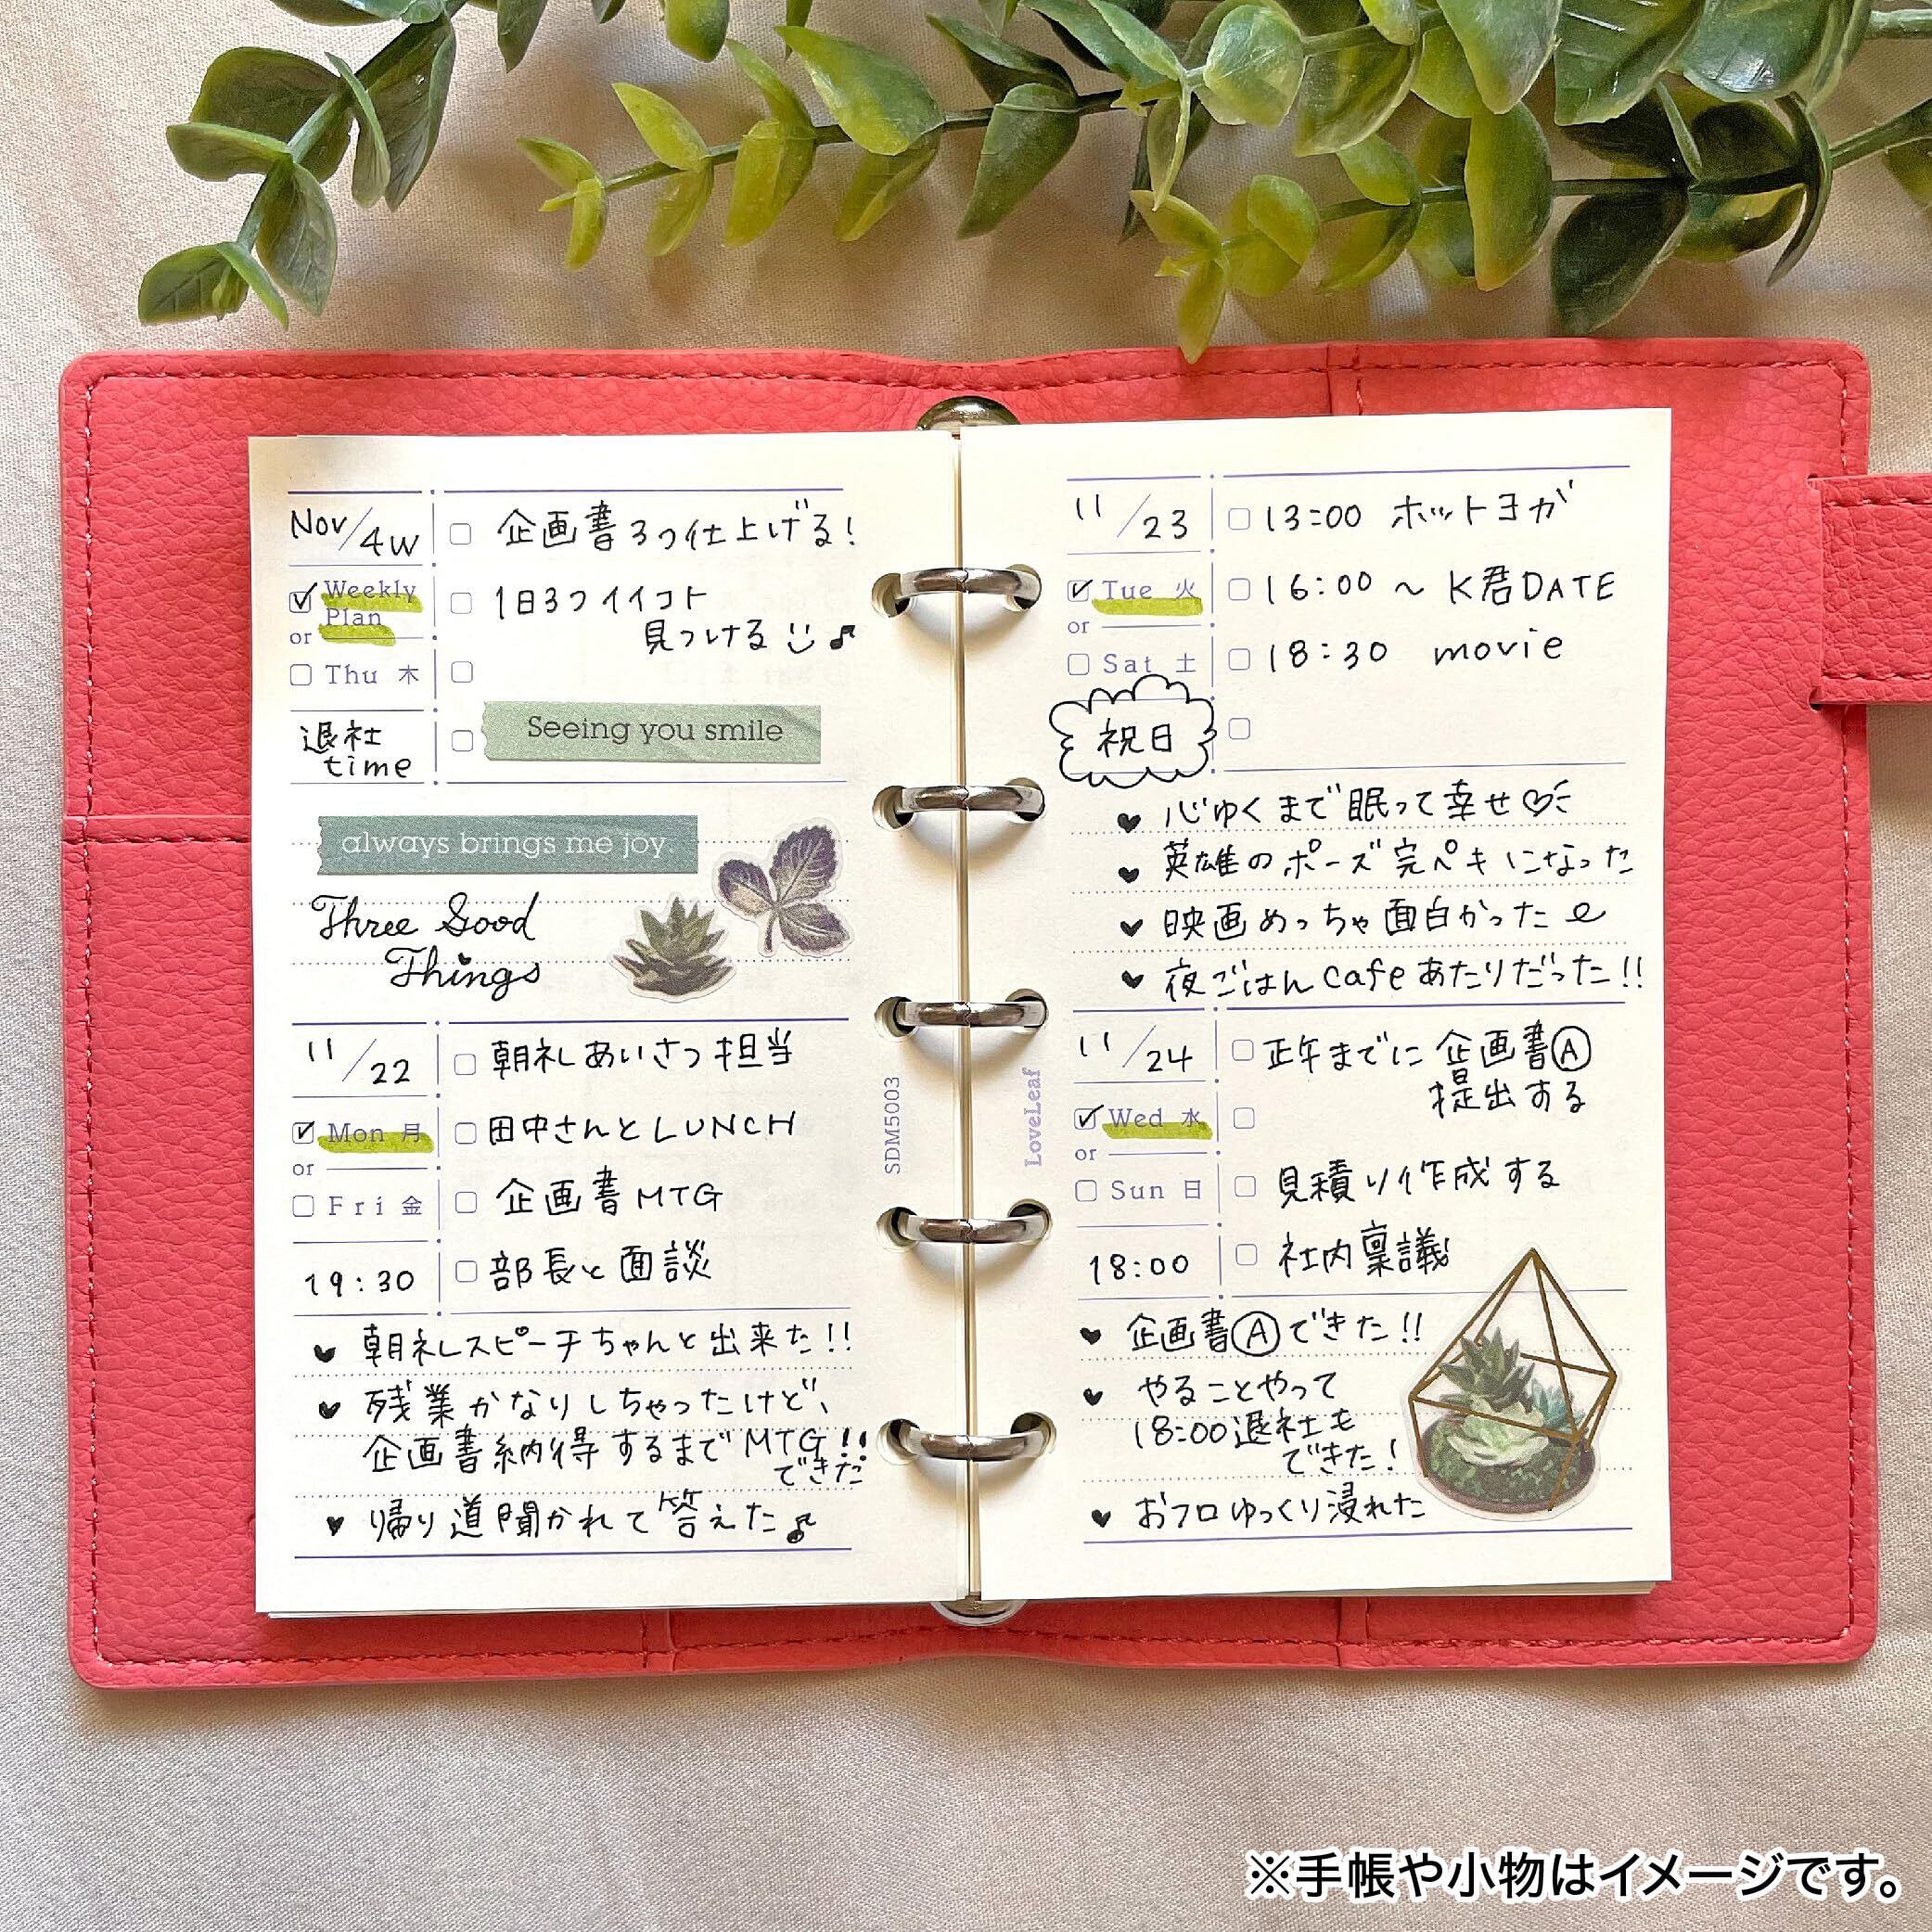 Nov/4W
企画書3つ仕上げる!
Weekly
Plan
1日3つイイコト
見つける
or
Thu 木
退社
time
Seeing you smile
always brings me joy.
Three Good
Things
11/22
朝礼あいさつ担当
Mon 月
田中さんとLUNCH
or
Fri 金
企画書MTG
19:30
部長と面談
朝礼スピーチちゃんと出来た!!
残業かなりしちゃったけど、
企画書納得するまでMTG!!
できた
帰り道聞かれて答えた♪
SDM5003
LoveLeaf
11/23
13:00 ホットヨガ
Tue 火
16:00 ~ K君DATE
or
Sat 土
18:30 movie
祝日
心ゆくまで眠って幸せ♡
英雄のポーズ完ペキになった
映画めっちゃ面白かった
夜ごはんcafeあたりだった!!
11/24
正午までに企画書Ⓐ
提出する
Wed 水
or
Sun 日
見積り作成する
18:00
社内稟議
企画書Ⓐできた!!
やることやって
18:00退社も
できた!
おフロゆっくり浸れた
※手帳や小物はイメージです。